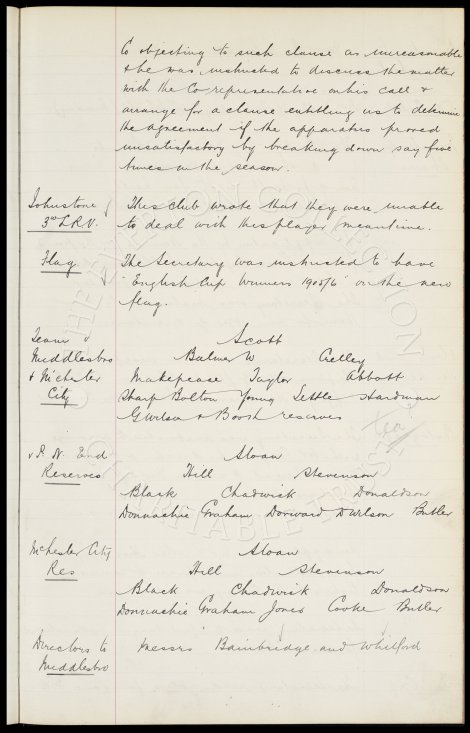 Co objecting to such clause as unreasonable
& he was instructed to discuss the matter
with the Co representative on his call &
arrange for a clause entitling us to determine
the agreement if the apparatus proved
unsatisfactory by breaking down say five
times in the season.
Johnstone This club wrote that they were unable
3rd L.R.V. to deal with this player meantime.
Flag The Secretary was instructed to have
"English Cup Winners 1905/6" on the new
flag.
Team v Scott
Middlesbro Balmer W Crelley
& M'chester Makepeace Taylor Abbott
City Sharp Bolton Young Settle Hardman
G Wilson & Booth reserves
v P. N. End Sloan
Reserves Hill Stevenson
Black Chadwick Donaldson
Donnachie Graham Dorward D Wilson Butler
M'chester City Sloan
Res Hill Stevenson
Black Chadwick Donaldson
Donnachie Graham Jones Cooke Butler
Directors to Messrs Bainbridge and Whitford
Middlesbro
THE EVERTON COLLECTION
CHARITABLE TRUST